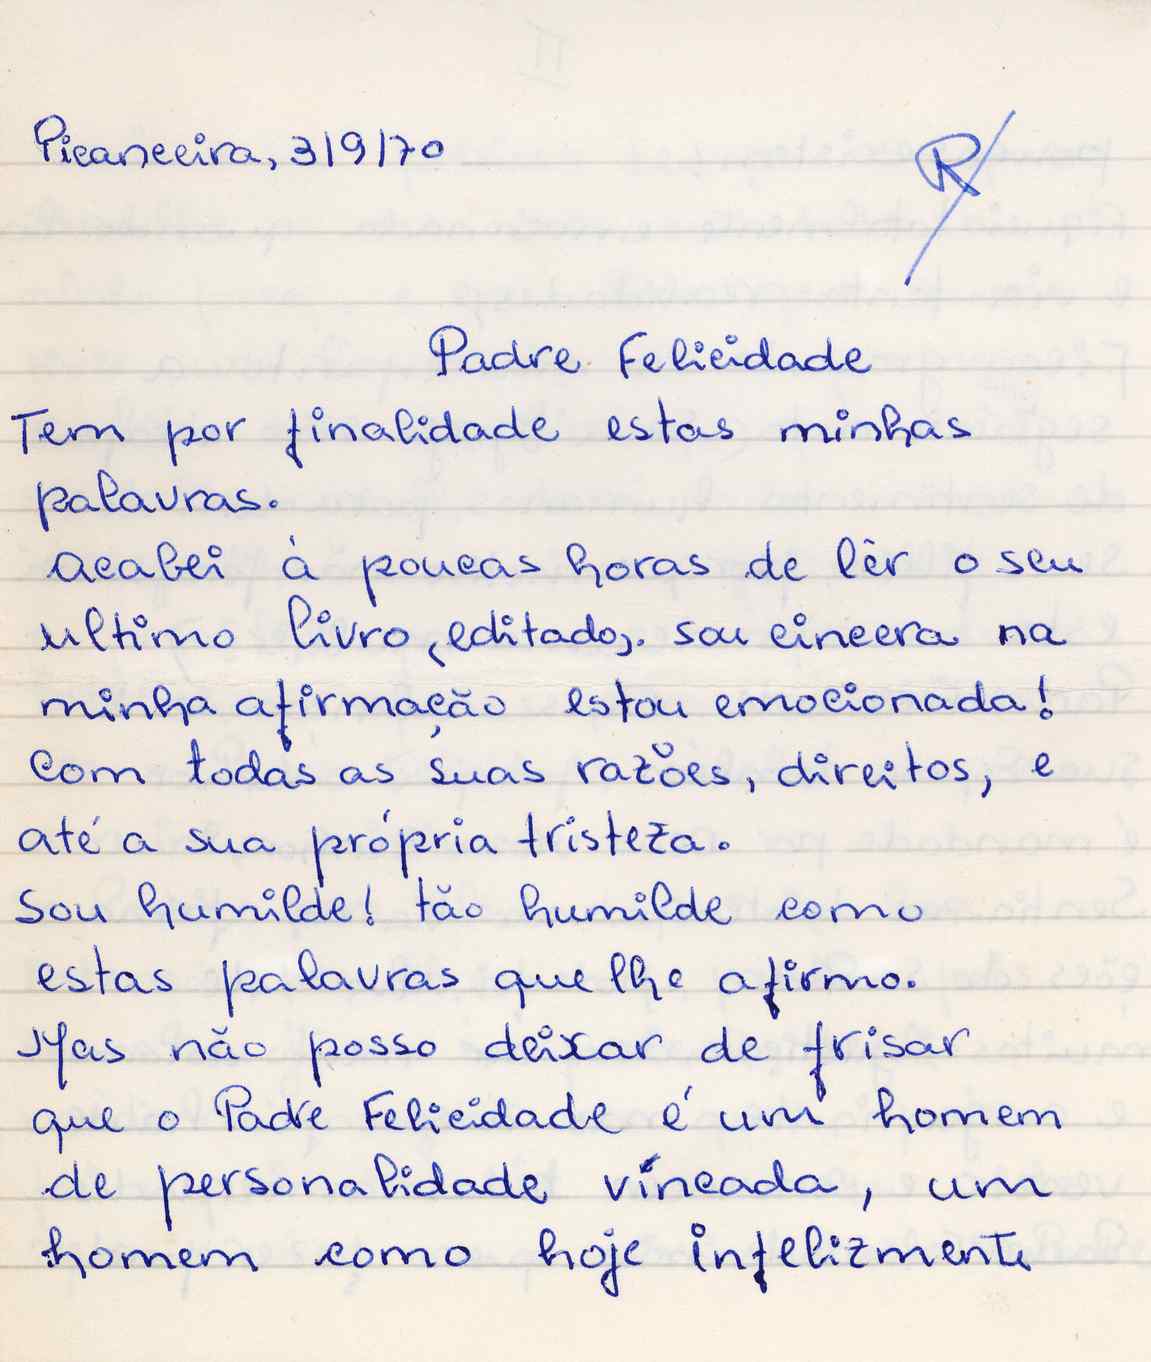 Picanceira, 3/9/70
R/
Padre Felicidade
Tem por finalidade estas minhas
palavras.
Acabei à poucas horas de lêr o seu
ultimo livro (editado). sou cincera na
minha afirmação estou emocionada!
Com todas as suas razões, direitos, e
até a sua própria tristeza.
Sou humilde! tão humilde como
estas palavras que lhe afirmo.
Mas não posso deixar de frisar
que o Padre Felicidade é um homem
de personalidade vincada, um
homem como hoje infelizmente